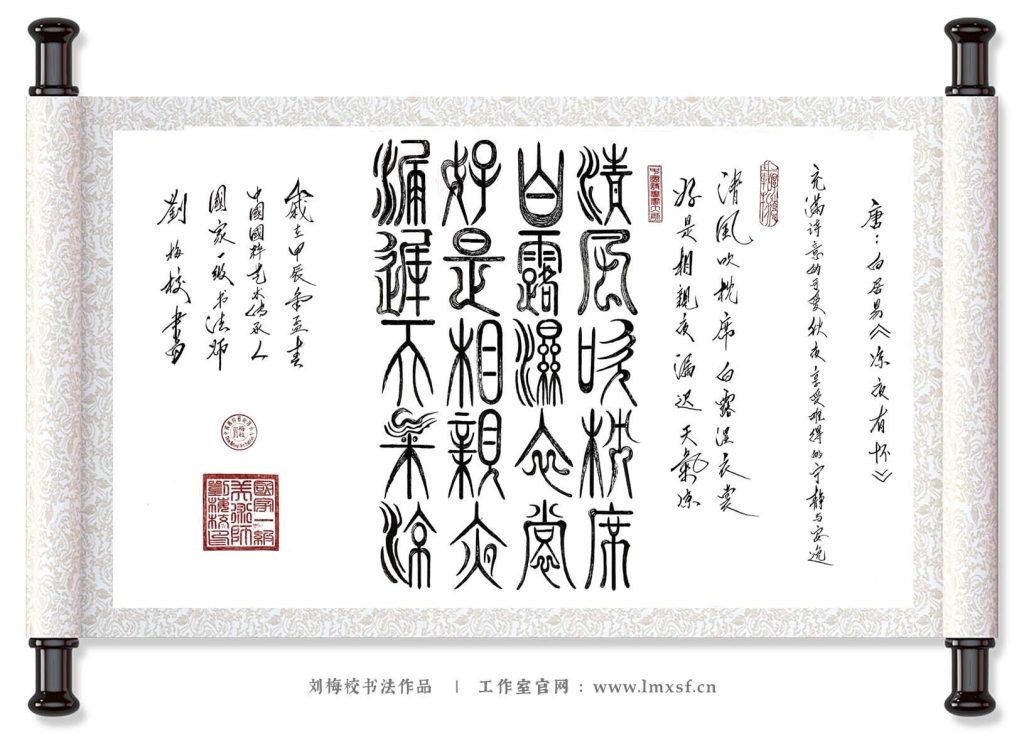 唐：白居易《凉夜有怀》
充满诗意的可爱秋夜享受难得的宁静与安逸
清风吹枕席白露湿衣裳
好是相亲夜漏迟天氣凉
清风吹枕席
白露濕衣裳
好是相親夜
漏遲天氣涼
歲在甲辰年孟春
中國國粹艺术传承人
國家一级书法师
劉梅校書
國家一級
美術師
劉梅校印
刘梅校书法作品 | 工作室官网：www.lmxsf.cn